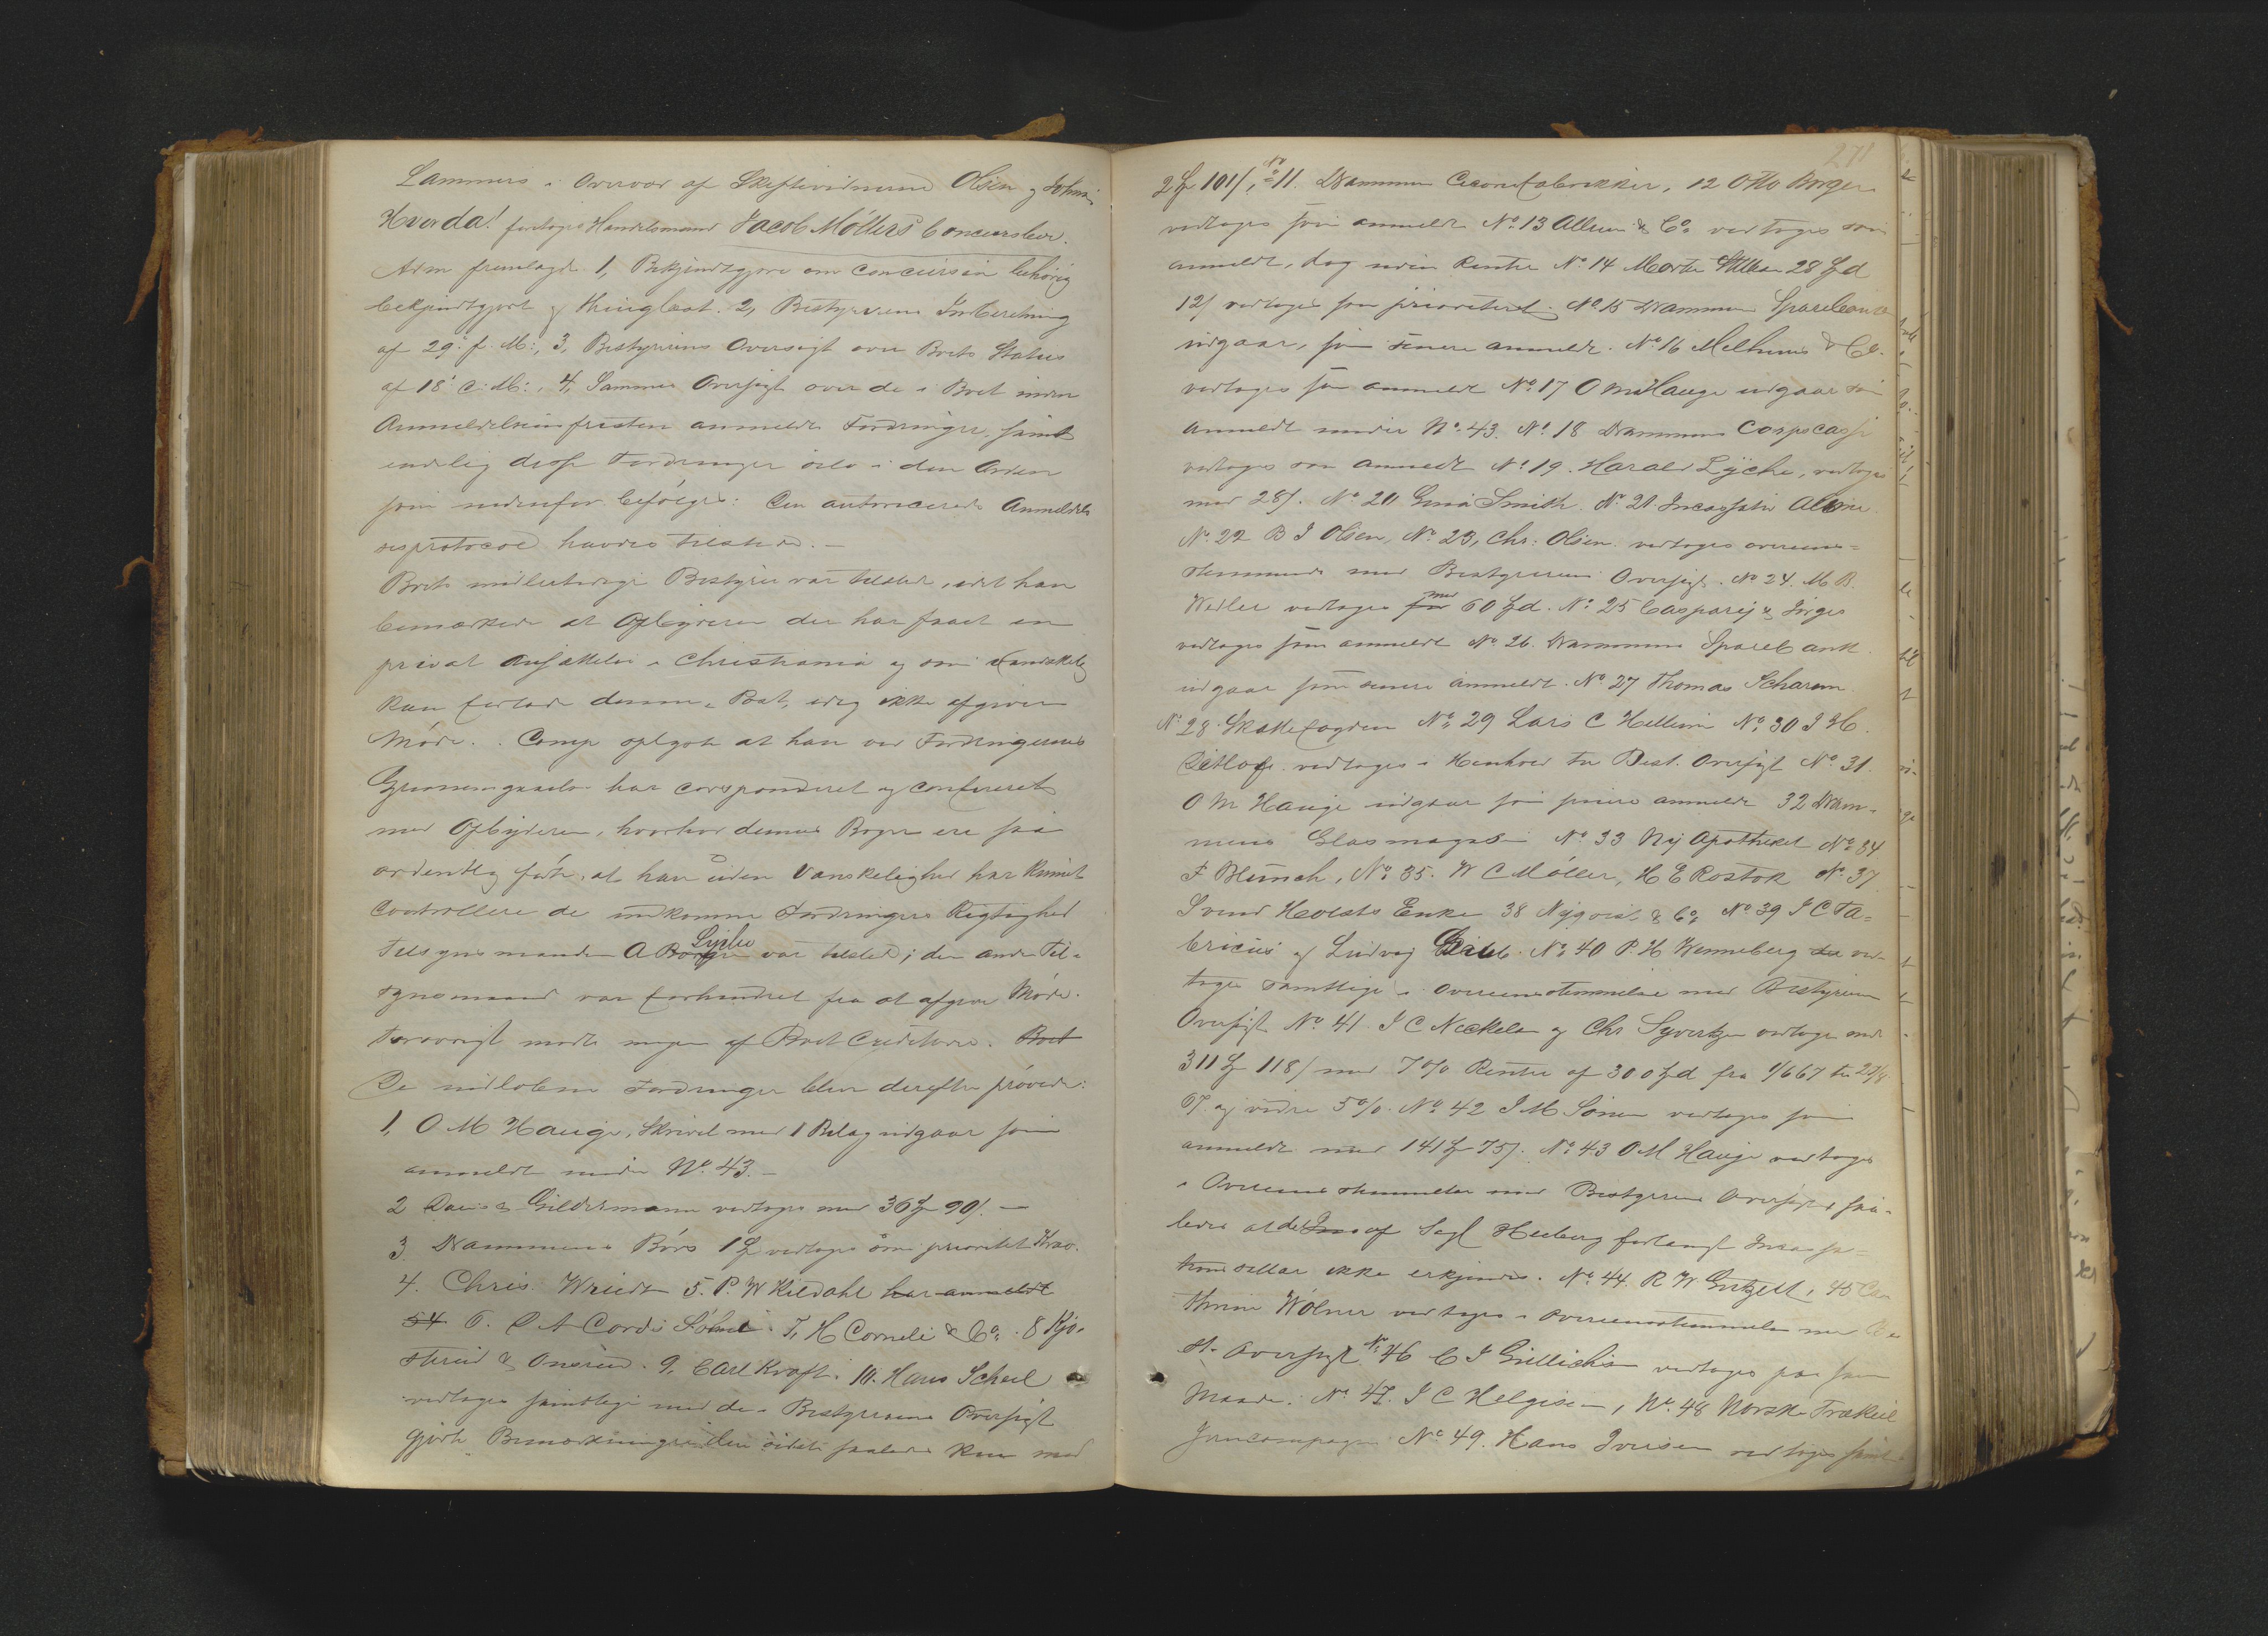 Lammers i Overvær af Skiftevidnerne Olsen og Johnsen
Hvorda! foretoges Handelsmand Jacob Möllers Concursbo.
Adm fremlagde 1, Bekjendtgjøre om Concursen behörig
bekjendtgjort og thinglæst. 2, Bestyrerens Indberetning
af 29. f. M:, 3, Bestyrerens Oversigt over Boets Status
af 18. c. M:, 4, Sammes Oversigt over de i Boet inden
Anmeldelsesfristen anmeldte Fordringer, samt
endelig disse Fordringer selv i den Orden
som nedenfor befölges. Den autoriserede Anmeldel-
sesprotocol havdes tilstede. —
Boets midlertidige Bestyrer var tilstede, idet han
bemærkede at Opbyderen der har faaet en
privat Ansættelse i Christiania og som vanskelig
kan forlade denne Post, idag ikke afgiver
Möde. Comp oplyste at han ved Fordringernes
Gjennemgaaelse har corsponderet og confereret
med Opbyderen, hvorhos dennes Böger ere saa
ordentlig förte, at han uden Vanskelighed har kunnet
Controllere de indkomne Fordringers Rigtighed
Tilsynsmanden A Borgen Lyche var tilstede; den anden Til-
synsmand var forhindret fra at afgive Möde.
Forövrigt mödte ingen af Boets Creditorer. Boet
De indlobne Fordringer blev derefter prövede:
1, O M Hauge, Skrivel med 1 Bilag udgaar som
anmeldt under No. 43. —
2 Davis & Gildermann vedtoges med 36 90/. —
3 Drammens Börs 1 vedtoges som prioritet Krav.
4. Chris. Wriedt 5. P. W Kildahl har anmeldt
54 6. C A Cordis Söhne. 7, H Corneli & Co. 8 Kjö-
sterud & Onsrud. 9, Carl Kraft. 10. Hans Scheel
vedtoges samtlige med de i Bestyrerens Oversigt
gjorte Bemærkninger den sidste saaledes kun med
271
2 101/, No 11. Drammens Ceconefabrikker, 12 Otto Borgen
vedtoges som anmeldt No. 13 Allum & Co. vedtoges som
anmeldt, dog uden Renter No. 14 Marte 28 d
12/ vedtoges som prioriteret. No 15 Drammens Sparebank
udgaar, som senere anmeldt. No. 16 Melhuus & Co.
vedtoges som anmeldt No. 17 O M Hauge udgaar som
anmeldt under No. 43. No. 18 Drammens Corpscasse
vedtoges som anmeldt No. 19. Harald Lyche, vedtoges
med 28/. No. 20 Smith. No. 21 Incassator
No. 22 B I Olsen, No. 23, Chr: Olsen vedtoges overeens-
stemmende med Bestyrerens Oversigt. No 24. M B
Wedler vedtoges for med 60 d. No. 25 Casparij & Jörges
vedtoges som anmeldt No. 26. Drammens Sparebank
udgaar som senere anmeldt. No. 27 Thomas Scharum
No. 28. Skattefogden No. 29 Lars C Hellum No. 30 I H.
Ditlofs vedtoges i Henhold til Best. Oversigt No. 31.
O M Hauge udgaar som senere anmeldt 32 Dram-
mens Glasmagasin No. 33 Ny Apotheket No. 34
F Blünch, No. 35. W C Möller, H E Rostok No. 37
Svend Holsts Enke 38 Nyqvist & Co. No. 39 I C Fa-
bricius og Ludvig No. 40 P. H Wenneberg der ved-
toges samtlige i Overeensstemmelse med Bestyrerens
Oversigt No. 41. I C Neckelsen og Chr Syvertzen vedtoges med
311 118/ med 7 % Renter af 300 d fra 1/6 67 til
67 og videre 5%. No. 42 I M Sönen vedtoges som
anmeldt med 141 75/. No. 43 O M Hauge vedtoges
i Overeensstemmelse med Bestyrerens Oversigt saa-
ledes at det af Sagf Heiberg forlangte Incasa-
tionssallar ikke erkjendes. No. 44. R W 45 Ca-
thrine Wölner vedtoges i Overeensstemmelse med Be-
st. Oversigt No. 46 C I vedtoges paa samme
Maade. No. 47. I C Helgesen, No. 48 Norsk Trækul
Jerncompagni No. 49. Hans Iversen vedtoges samt-